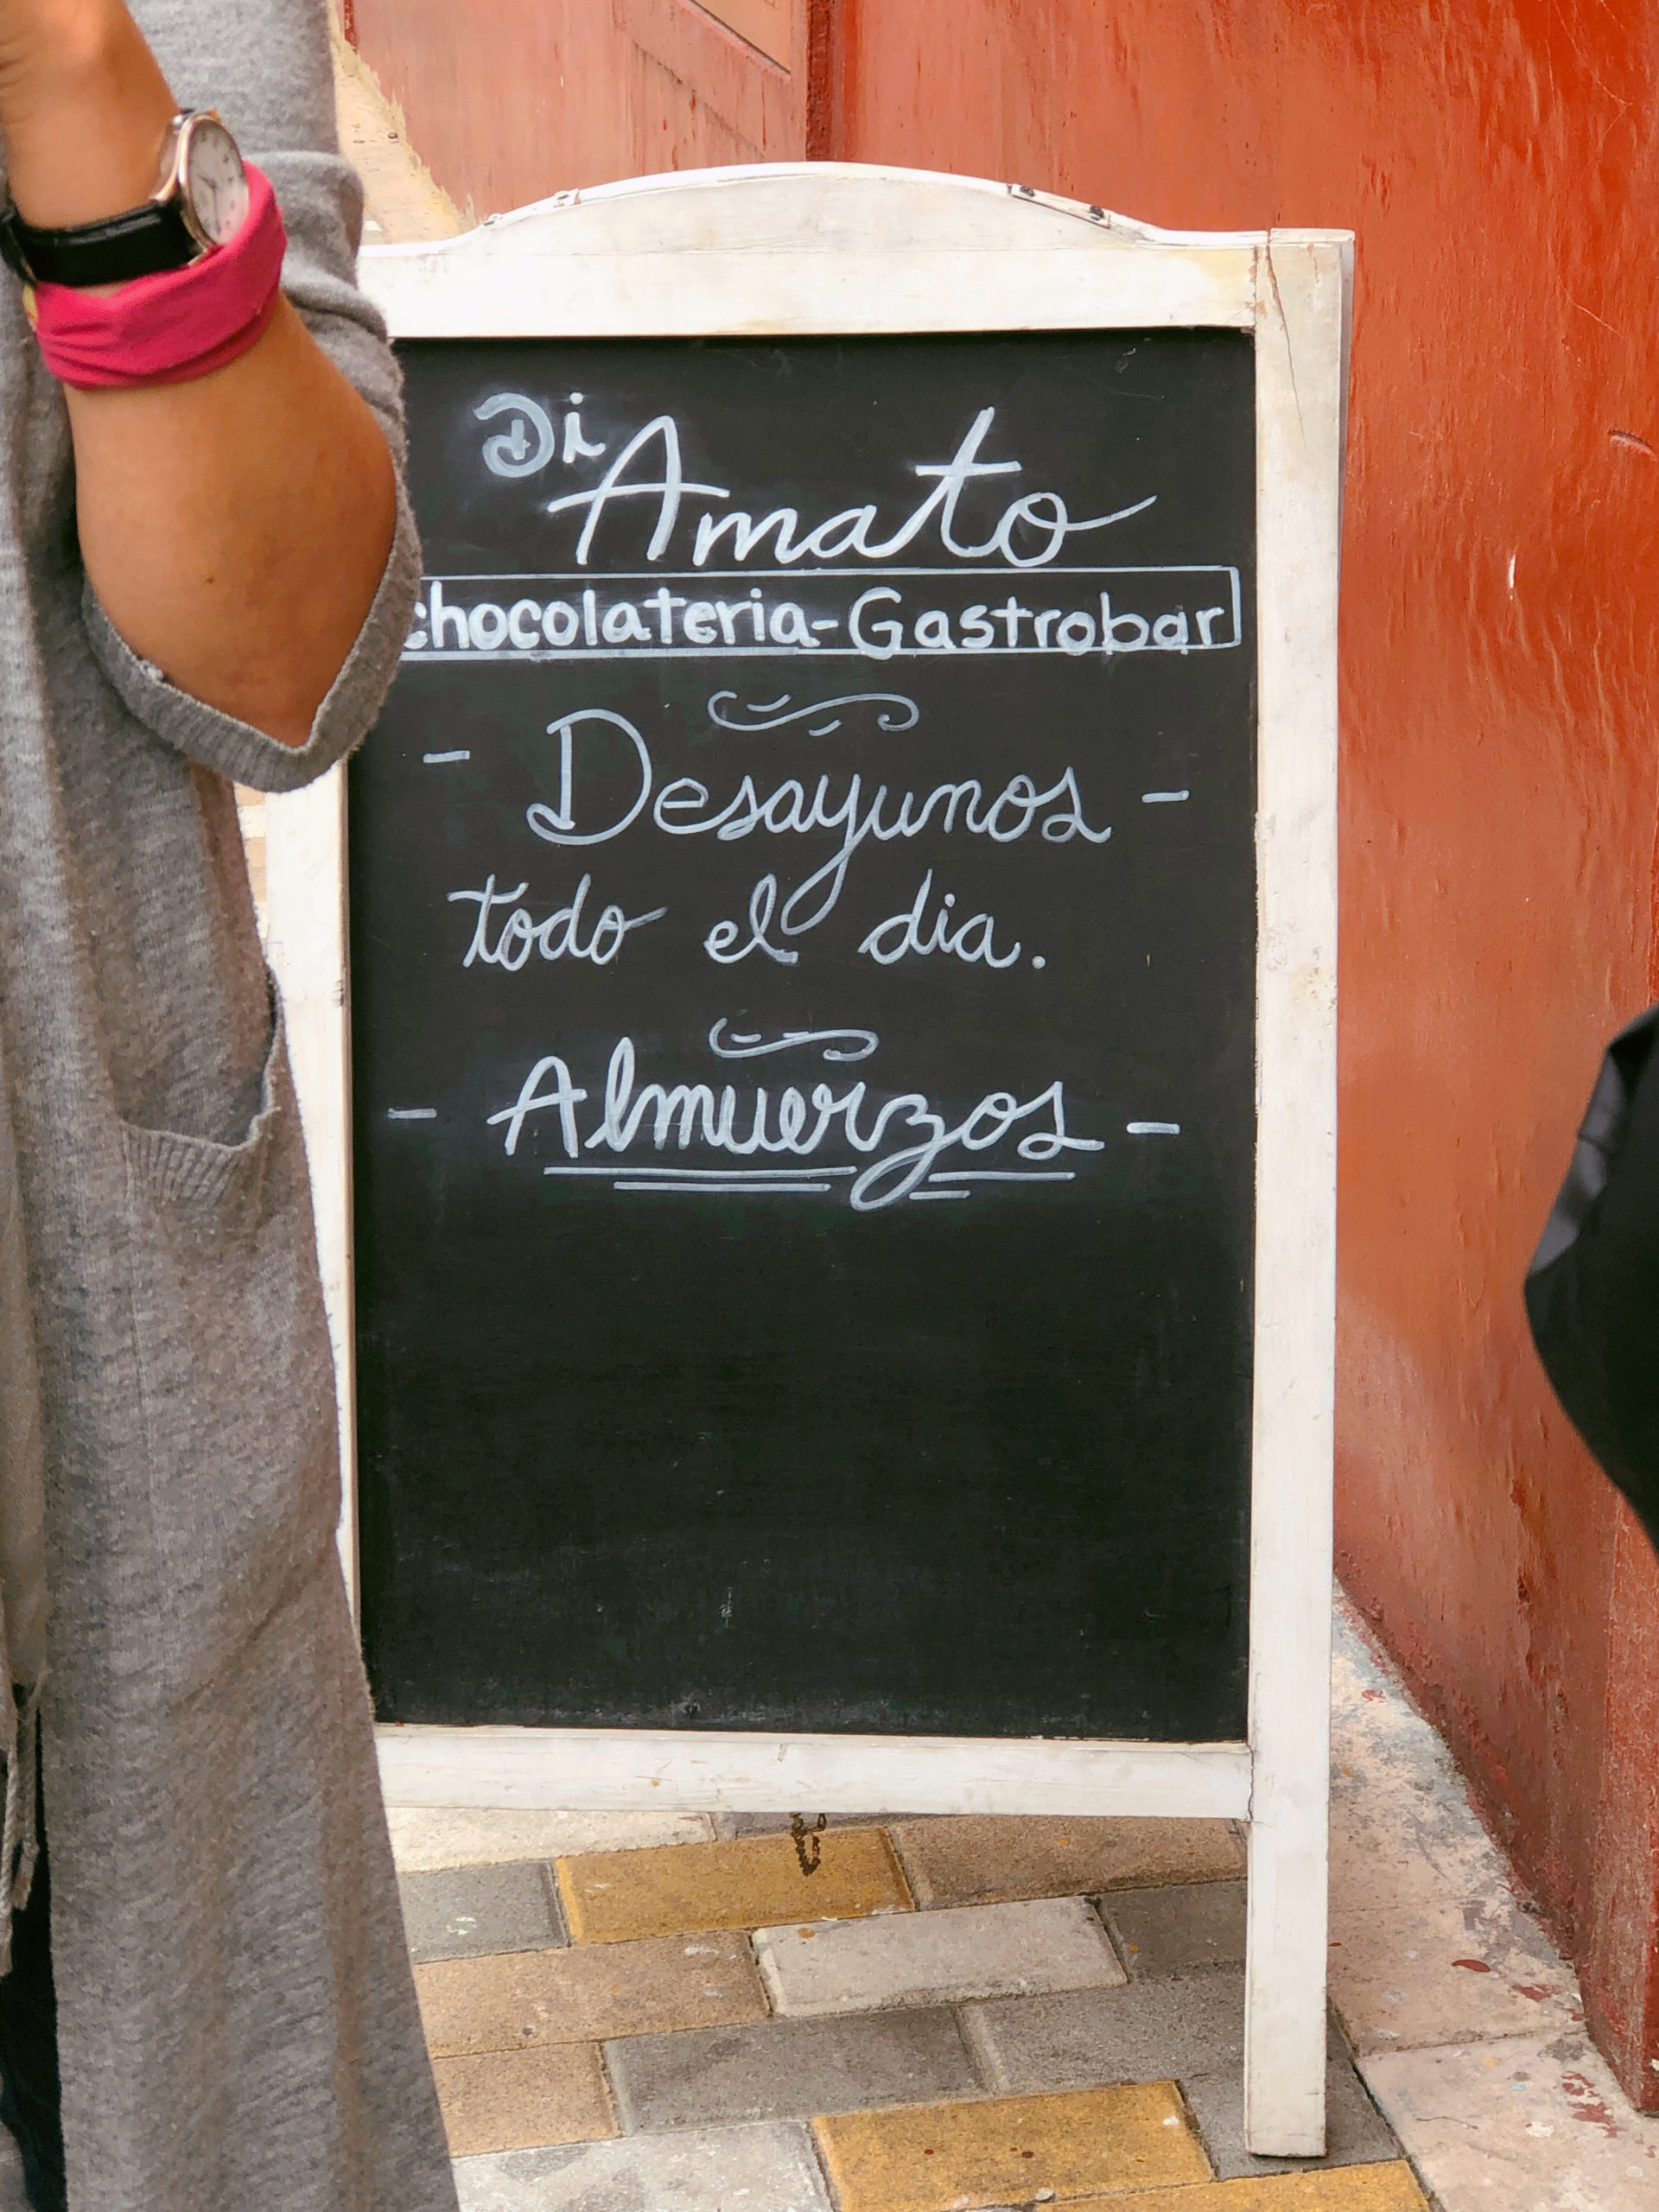 Di
Amato
chocolateria-Gastrobar
- Desayunos -
todo el dia.
- Almuerzos -